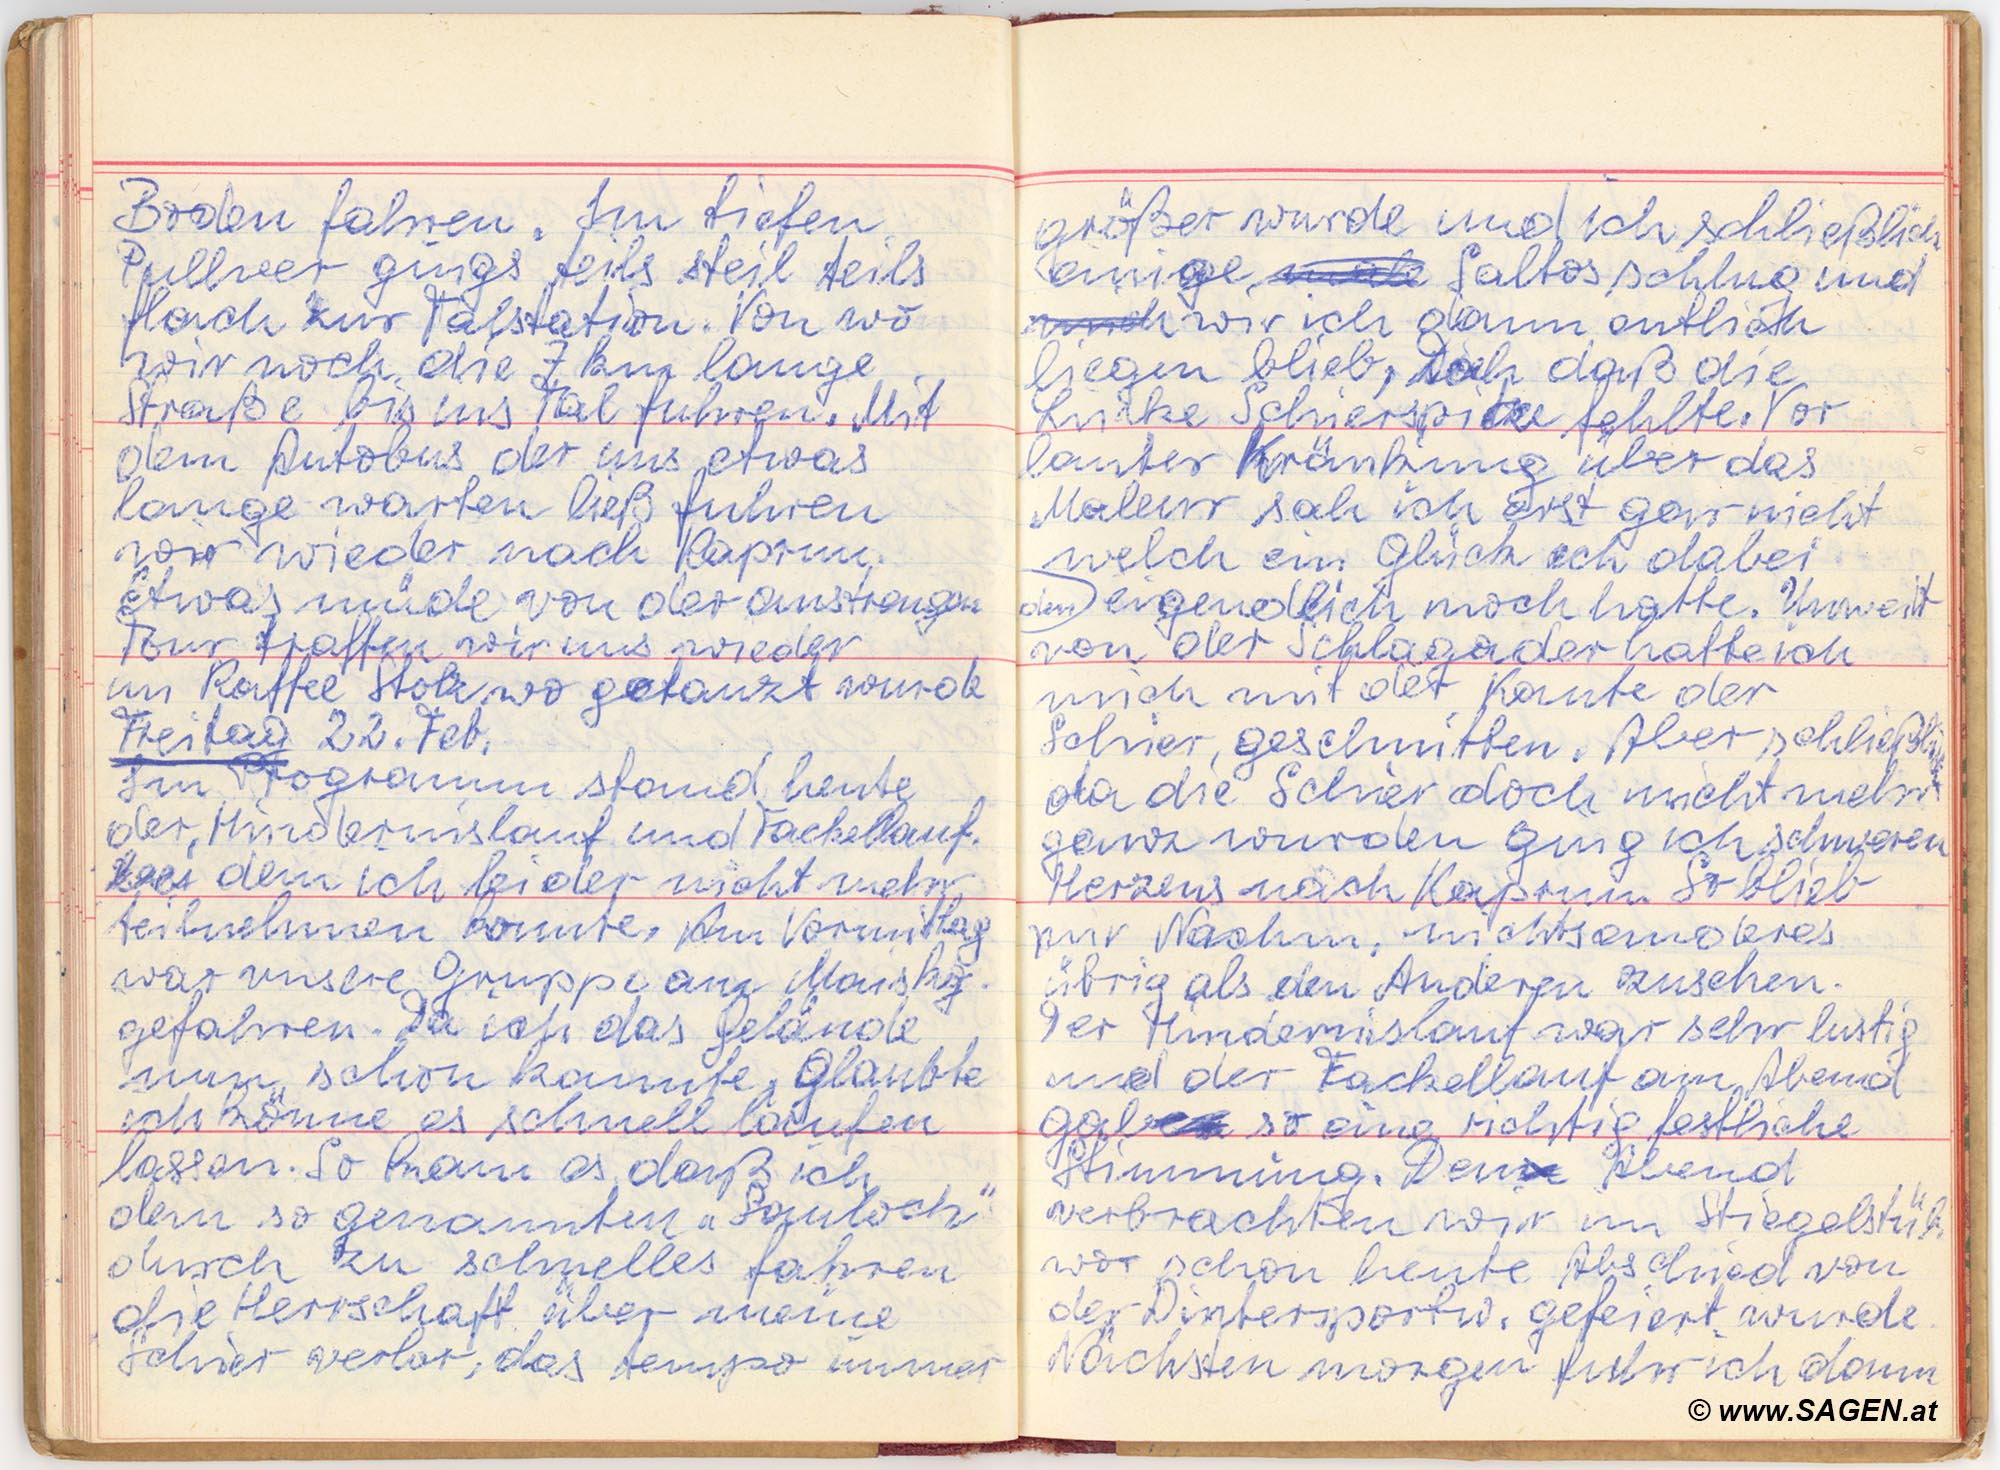 Boden fahren. Im tiefen
Pullver gings teils steil teils
flach zur Talstation. Von wo
wir noch die 7 km lange
Straße bis ins Tal fuhren. Mit
dem Autobus der uns etwas
lange warten ließ fuhren
wir wieder nach Kaprun.
Etwas müde von der anstrengen
Tour traffen wir uns wieder
im Kaffee Stolz wo getanzt wurde
Freitag 22. Feb.
Im Programm stand heute
der Hindernislauf und Fackellauf.
bei dem ich leider nicht mehr
teilnehmen konnte. Am Vormittag
war unsere Gruppe am
gefahren. Da ich das Gelände
nun schon kannte, glaubte
ich könne es schnell laufen
lassen. So kam es daß ich
dem so genannten „Sauloch"
durch zu schnelles fahren
die Herrschaft über meine
Schier verlor, das tempo immer
größer wurde und ich schließlich
einige Saltos schlug und
wir ich dann entlich
liegen blieb, sah daß die
Linke Schierspitze fehlte. Vor
lauter Kränkung über das
Maleur sah ich erst gar nicht
welch ein Glück ich dabei
den eigendlich noch hatte. Unweit
von der Schlagader hatte ich
mich mit der Kante der
Schier, geschnitten. Aber schließlich
da die Schier doch nicht mehr
ganz wurden ging ich schweren
Herzens nach Kaprun. So blieb
mir Nachm. nichts anderes
übrig als den Anderen zusehen.
Der Hindernislauf war sehr lustig
und der Fackellauf am Abend
gab so eine richtig festliche
Stimmung. Den Abend
verbrachten wir im Stiegelstüb.
wo schon heute Abschied von
der Wintersportw. gefeiert wurde.
Nächsten morgen fuhr ich dann
© www.SAGEN.at